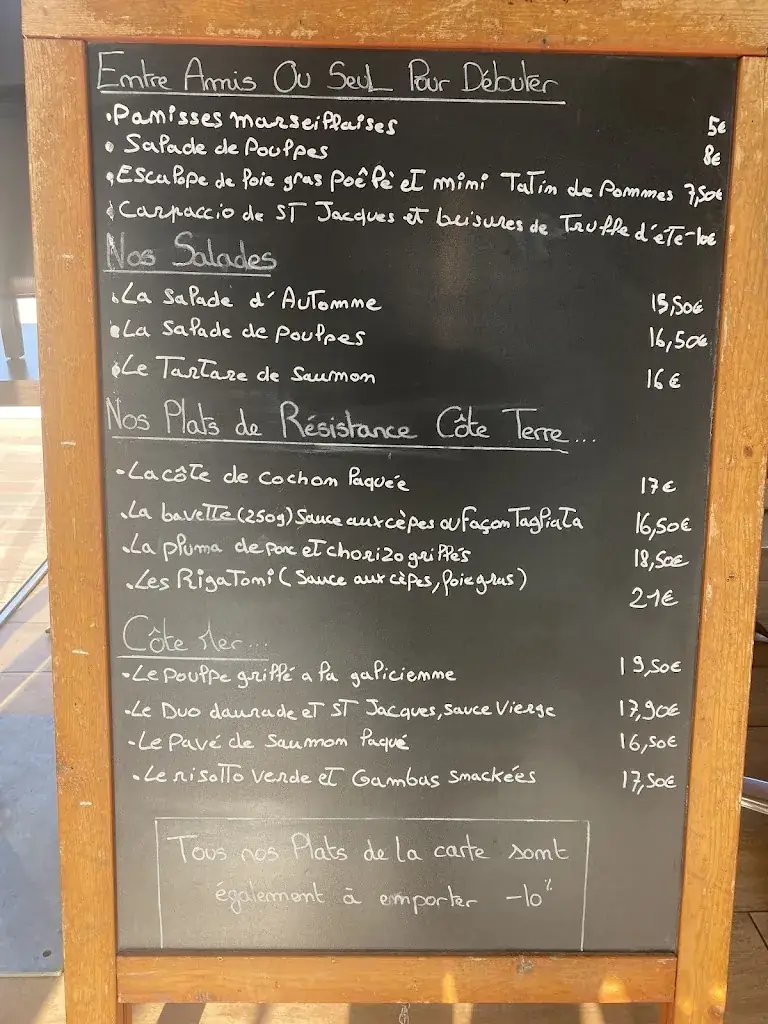 Entre Amis Ou Seul Pour Débuter
•Panisses marseillaises 5€
• Salade de Poulpes 8€
•Escalope de foie gras poêlé et mini Tatin de Pommes 7,50€
•Carpaccio de ST Jacques et brisures de Truffe d'été-10€
Nos Salades
•La salade d'Automne 15,50€
•La salade de poulpes 16,50€
•Le Tartare de saumon 16€
Nos Plats de Résistance Côte Terre...
•La côte de cochon laquée 17€
•La bavette (250g) sauce aux cèpes ou façon Tagliata 16,50€
•La pluma de porc et chorizo grillés 18,50€
•Les Rigatoni (sauce aux cèpes, foie gras) 21€
Côte Mer...
•Le poulpe grillé a la galicienne 19,50€
•Le Duo daurade et ST Jacques, sauce Vierge 17,90€
•Le Pavé de Saumon laqué 16,50€
•Le risotto verde et Gambas snackées 17,50€
Tous nos Plats de la carte sont
également à emporter -10%